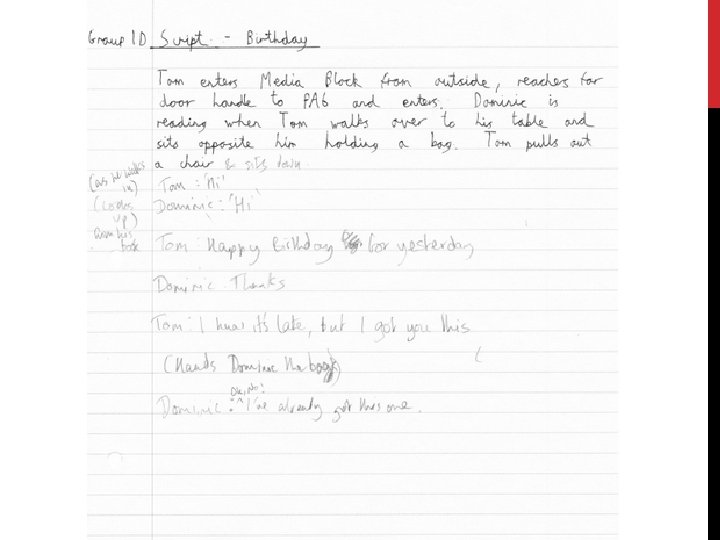 Group 1D Script. - Birthday
Tom enters Media Block from outside, reaches for
door handle to PA6 and enters. Dominic is
reading when Tom walks over to his table and
sits opposite him holding a bag. Tom pulls out
a chair & sits down.
(as he walks
in) Tom: "Hi"
(Looks
up) Dominic: "Hi"
from his
book
Tom: Happy Birthday for yesterday
Dominic: Thanks
Tom: I know it's late, but I got you this
(Hands Dominic the book)
Dominic: "Oh, no! I've already got this one.